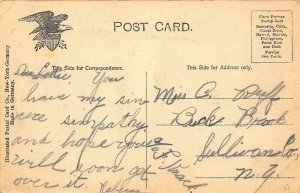 POST CARD.
Place Postage
Stamp Here
Domestic, Cuba,
Canal Zone,
Hawaii, Mexico,
Philippines,
Porto Rico
one Cent
Foreign
two Cents.
This Side for Correspondence.
This Side for Address only.
Illustrated Postal Card Co., New-York-Germany
Made in Germany.
Dear Louise Your
have my sin
cere simpathy
and hope you
will soon get
over it.
Rebecca
Miss C. Ruff
Buck Brook
Sullivan Co,
N.Y.